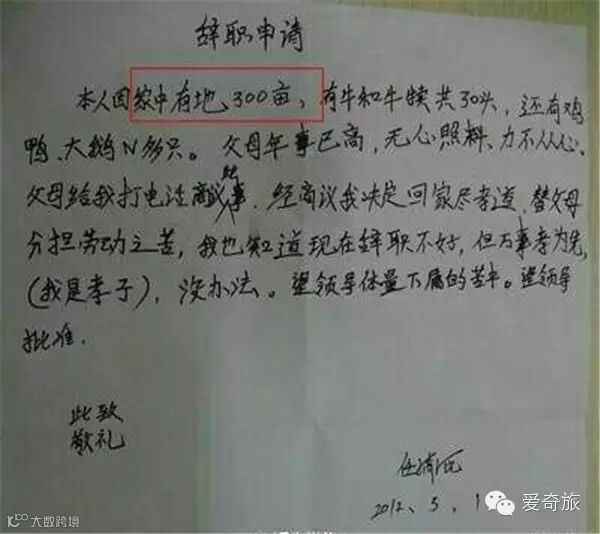 辞职申请
本人因家中有地300亩，有牛和牛犊共30头，还有鸡
鸭、大鹅N多只。父母年事已高，无心照料、力不从心。
父母给我打电话商议此事，经商议我决定回家尽孝道，替父母
分担劳动之苦，我也知道现在辞职不好，但万事孝为先，
(我是孝子)，没办法。望领导体量下属的苦中。望领导
批准.
此致
敬礼
2012、5、1
爱奇旅
大数跨境